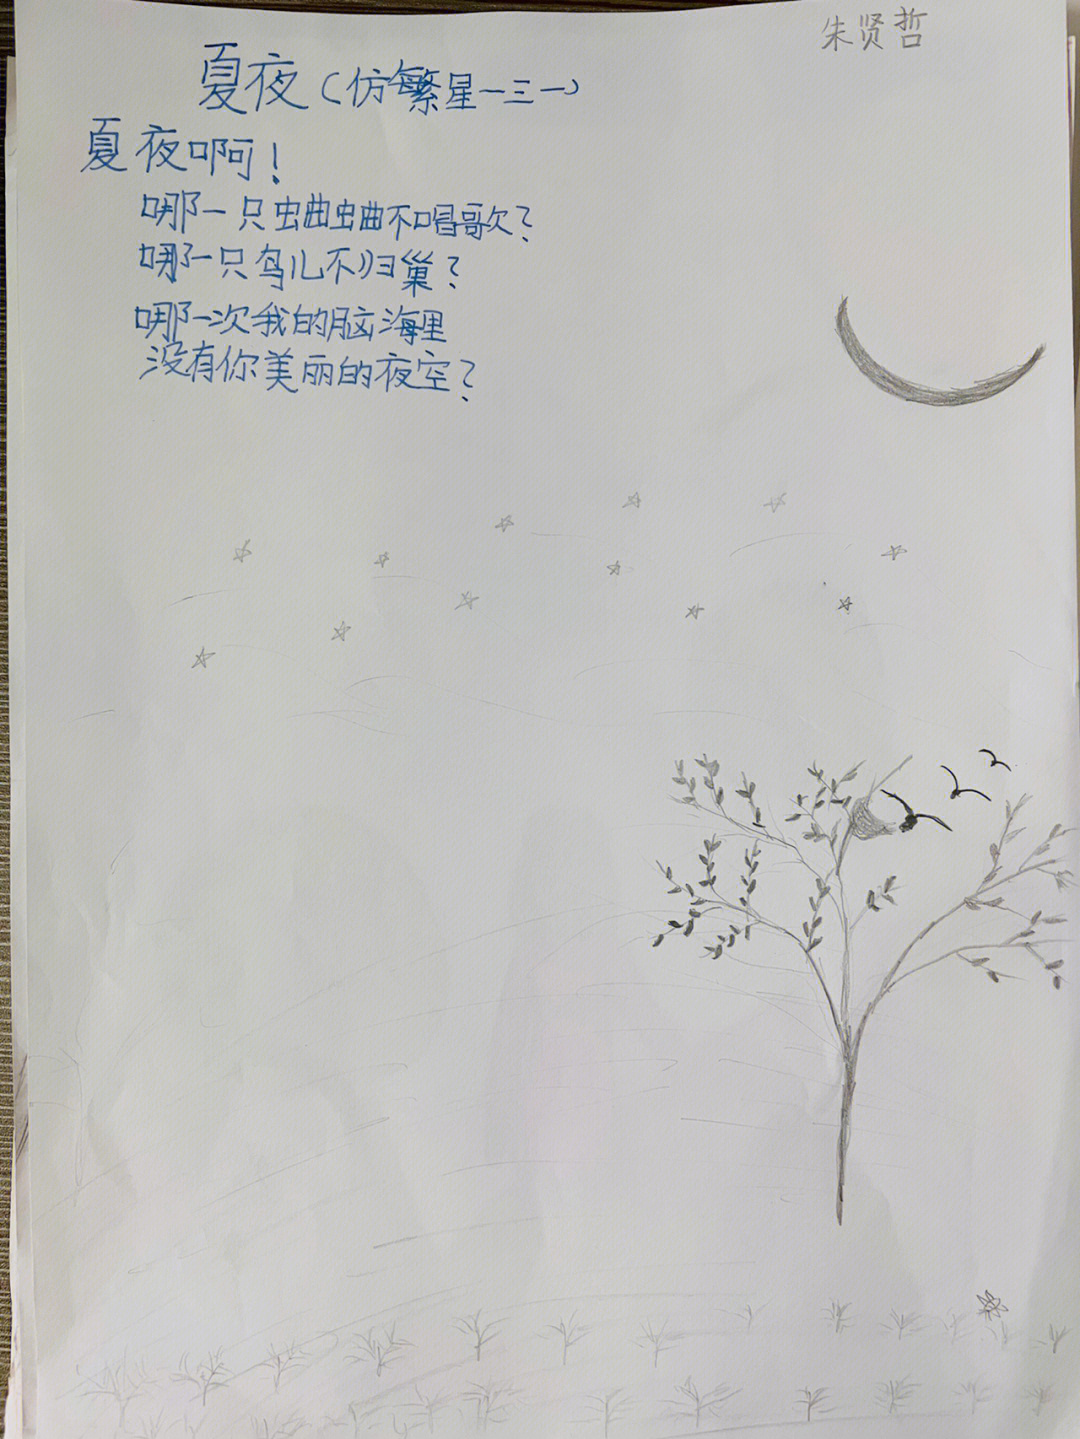 朱贤哲
夏夜（仿繁星一三一）
夏夜啊！
哪一只蛐蛐不唱歌？
哪一只鸟儿不归巢？
哪一次我的脑海里
没有你美丽的夜空？